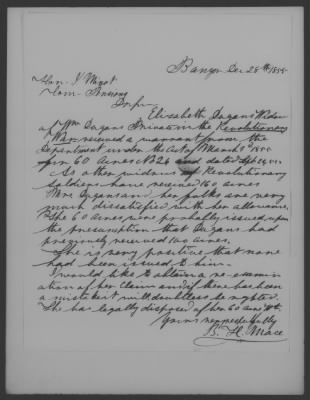 Bangor Dec 28th 1855
Hon. J Minot
Com. Pensions
Dr Sir
Elisabeth Dugans Widow
of Wm Dugans Private in the Revolutionary
War received a warrant from the
Department under the Act of March 3d 1855
for 60 Acres No 26 and dated Sept
As other widows of Revolutionary
Soldiers have received 160 acres
Mrs Dugans and her folks are very
much dissatisfied with her allowance.
The 60 Acres were probably issued upon
the presumption that Dugans had
previously received 100 acres.
She is very positive that none
had been issued to him.
I would like to obtain a re-examin
ation of her claim and if there has been
a mistake it will doubtless be righted.
She has legally disposed of her 60 acre Wt.
Yours respectfully
B. H. Mace